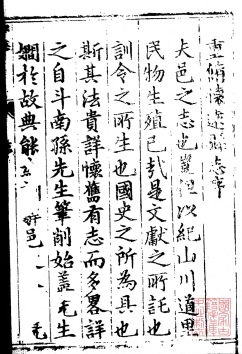 重脩懷遠縣志序
夫邑之志也豈以紀山川道里
民物生殖已哉是文獻之所託也
訓令之所生也國史之所為具也
斯其法貴詳懷舊有志而多畧詳
之自斗南孫先生筆削始蓋先生
嫺於故典
邑